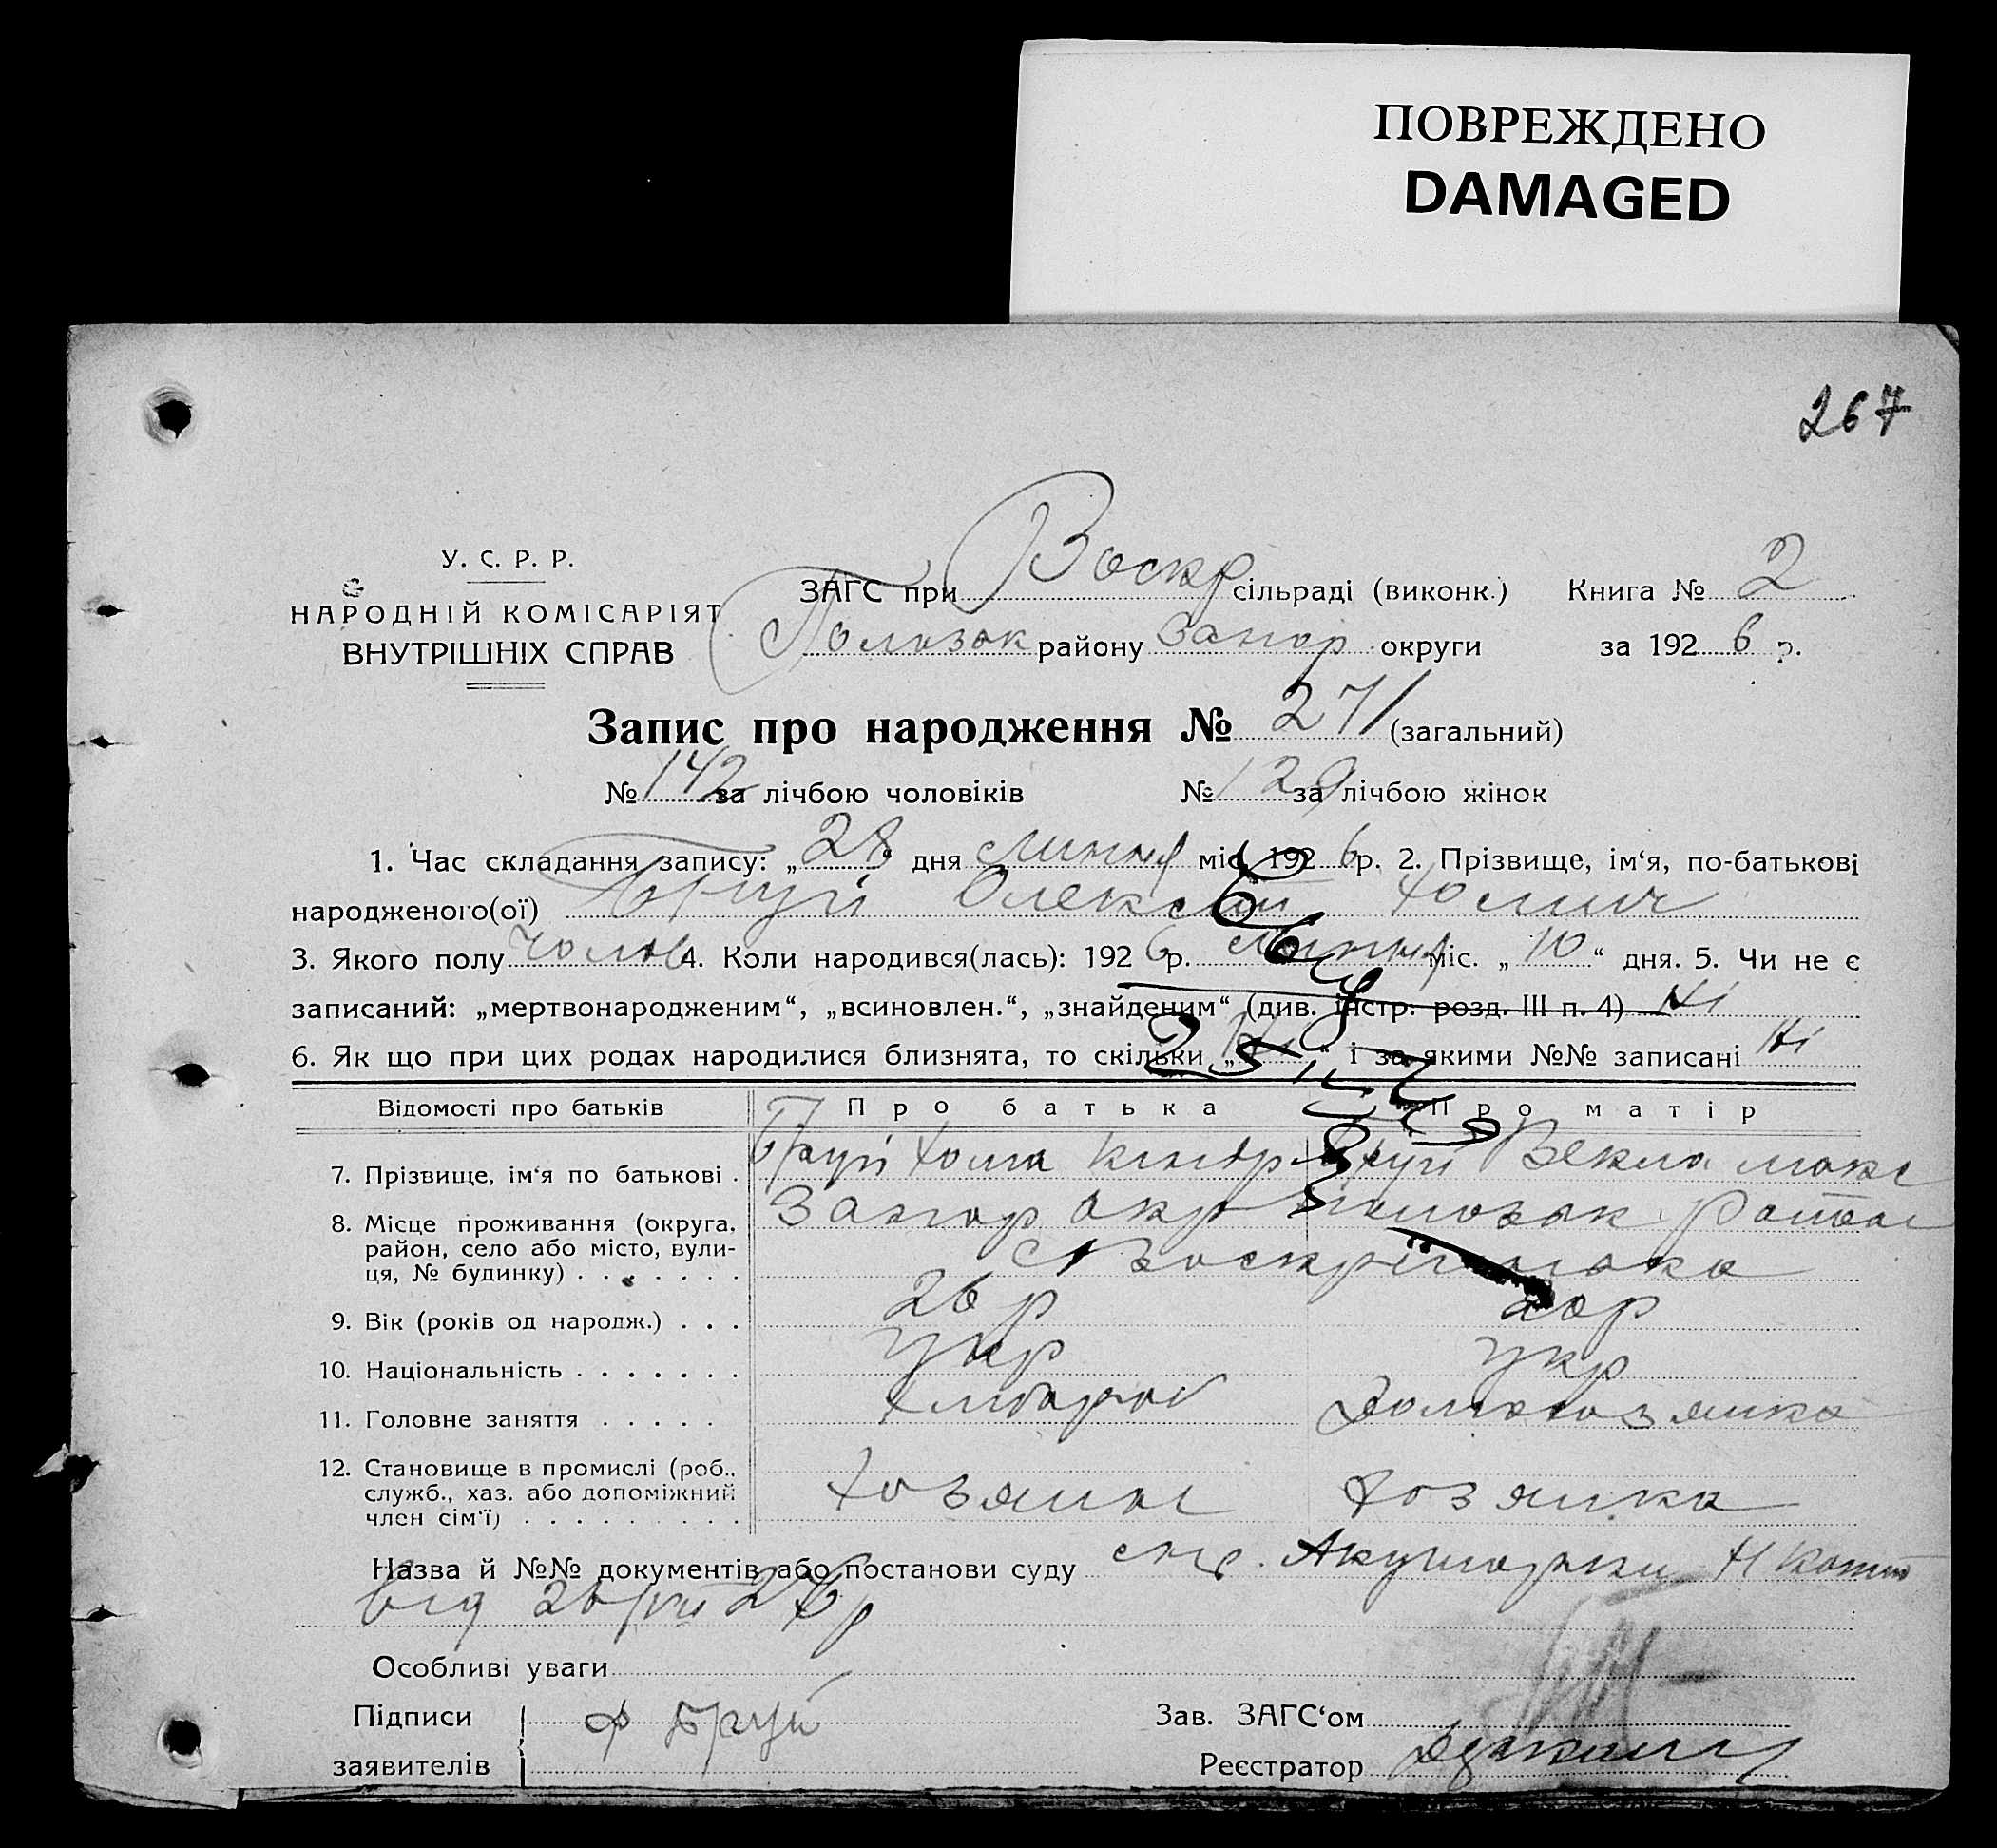 ПОВРЕЖДЕНО
DAMAGED
267
У. С. Р. Р.
НАРОДНІЙ КОМІСАРІЯТ
ВНУТРІШНІХ СПРАВ
ЗАГС при Воскр сільраді (виконк.) Книга № 2
Полозьк району Запор округи за 1926 р.
Запис про народження № 271 (загальний)
№ 142 за лічбою чоловіків № 129 за лічбою жінок
1. Час складання запису: „28“ дня липня міс. 1926 р. 2. Прізвище, ім‘я, по-батькові
народженого(ої) Бруй Олексій Хомич
3. Якого полу чолов 4. Коли народився(лась): 1926 р. липня міс. „10“ дня. 5. Чи не є
записаний: „мертвонародженим“, „всиновлен.“, „знайденим“ (див. інстр. розд. III п. 4) Ні
6. Як що при цих родах народилися близнята, то скільки „ “ і за якими №№ записані Ні
Відомості про батьків Про батька Про матір
7. Прізвище, ім‘я по батькові . Бруй Хома Бруй Векла
8. Місце проживання (округа, Запор окр Полозьк район
район, село або місто, вули-
ця, № будинку) . . . . . . . с
9. Вік (років од народж.) . . . 26 р
10. Національність . . . . . . . укр укр
11. Головне заняття . . . . . Хлібороб Домохозяйка
12. Становище в промислі (роб.,
служб., хаз. або допоміжний Хозяин Хозяйка
член сім‘ї) . . . . . . . . .
Назва й №№ документів або постанови суду Акушорки
від 26/VII 26р
Особливі уваги
Підписи Бруй Зав. ЗАГС‘ом
заявителів Реєстратор